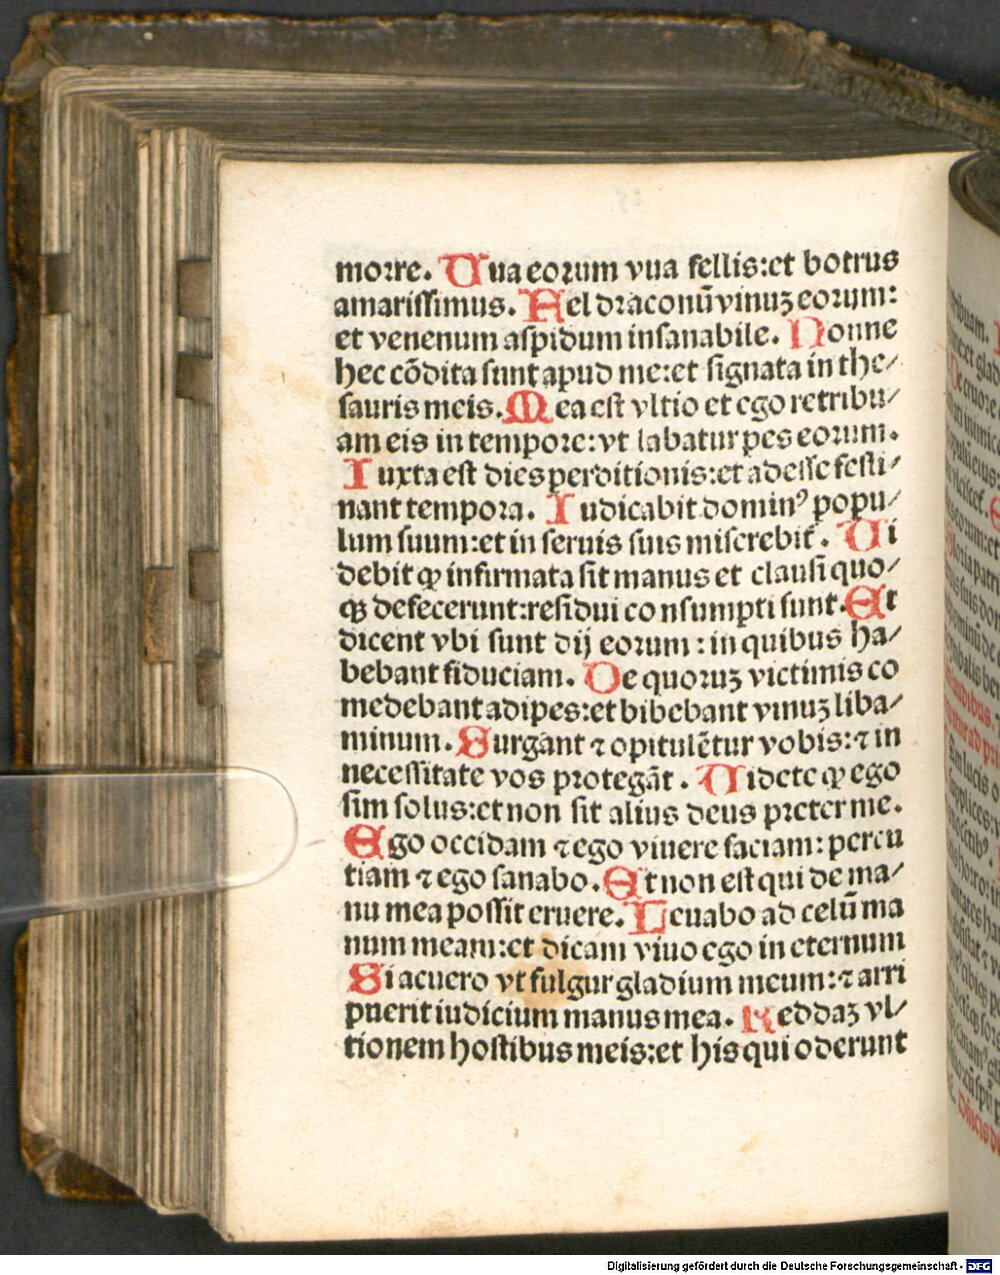 morre. Uua eorum vua fellis:et botrus
amarissimus. Fel draconū vinuʒ eorum:
et venenum aspidum insanabile. Nonne
hec cōdita sunt apud me:et signata in the⸗
sauris meis. Mea est vltio et ego retribu⸗
am eis in tempore:vt labatur pes eorum.
Iuxta est dies perditionis:et adesse festi⸗
nant tempora. Iudicabit dominꝰ popu⸗
lum suum:et in seruis suis miserebit᷑. Ui
debit ꝙ infirmata sit manus et clausi quo⸗
qꝫ defecerunt:residui consumpti sunt. Et
dicent vbi sunt dij eorum: in quibus ha⸗
bebant fiduciam. De quoruʒ victimis co
medebant adipes:et bibebant vinuʒ liba⸗
minum. Surgant ⁊ opitulētur vobis:⁊ in
necessitate vos protegāt. Uidete ꝙ ego
sim solus:et non sit alius deus preter me.
Ego occidam ⁊ ego viuere faciam: percu
tiam ⁊ ego sanabo. Et non est qui de ma⸗
nu mea possit eruere. Leuabo ad celū ma
num meam:et dicam viuo ego in eternum
Si acuero vt fulgur gladium meum:⁊ arri
puerit iudicium manus mea. Reddaʒ vl⸗
tionem hostibus meis:et his qui oderunt
Digitalisierung gefördert durch die Deutsche Forschungsgemeinschaft - DFG